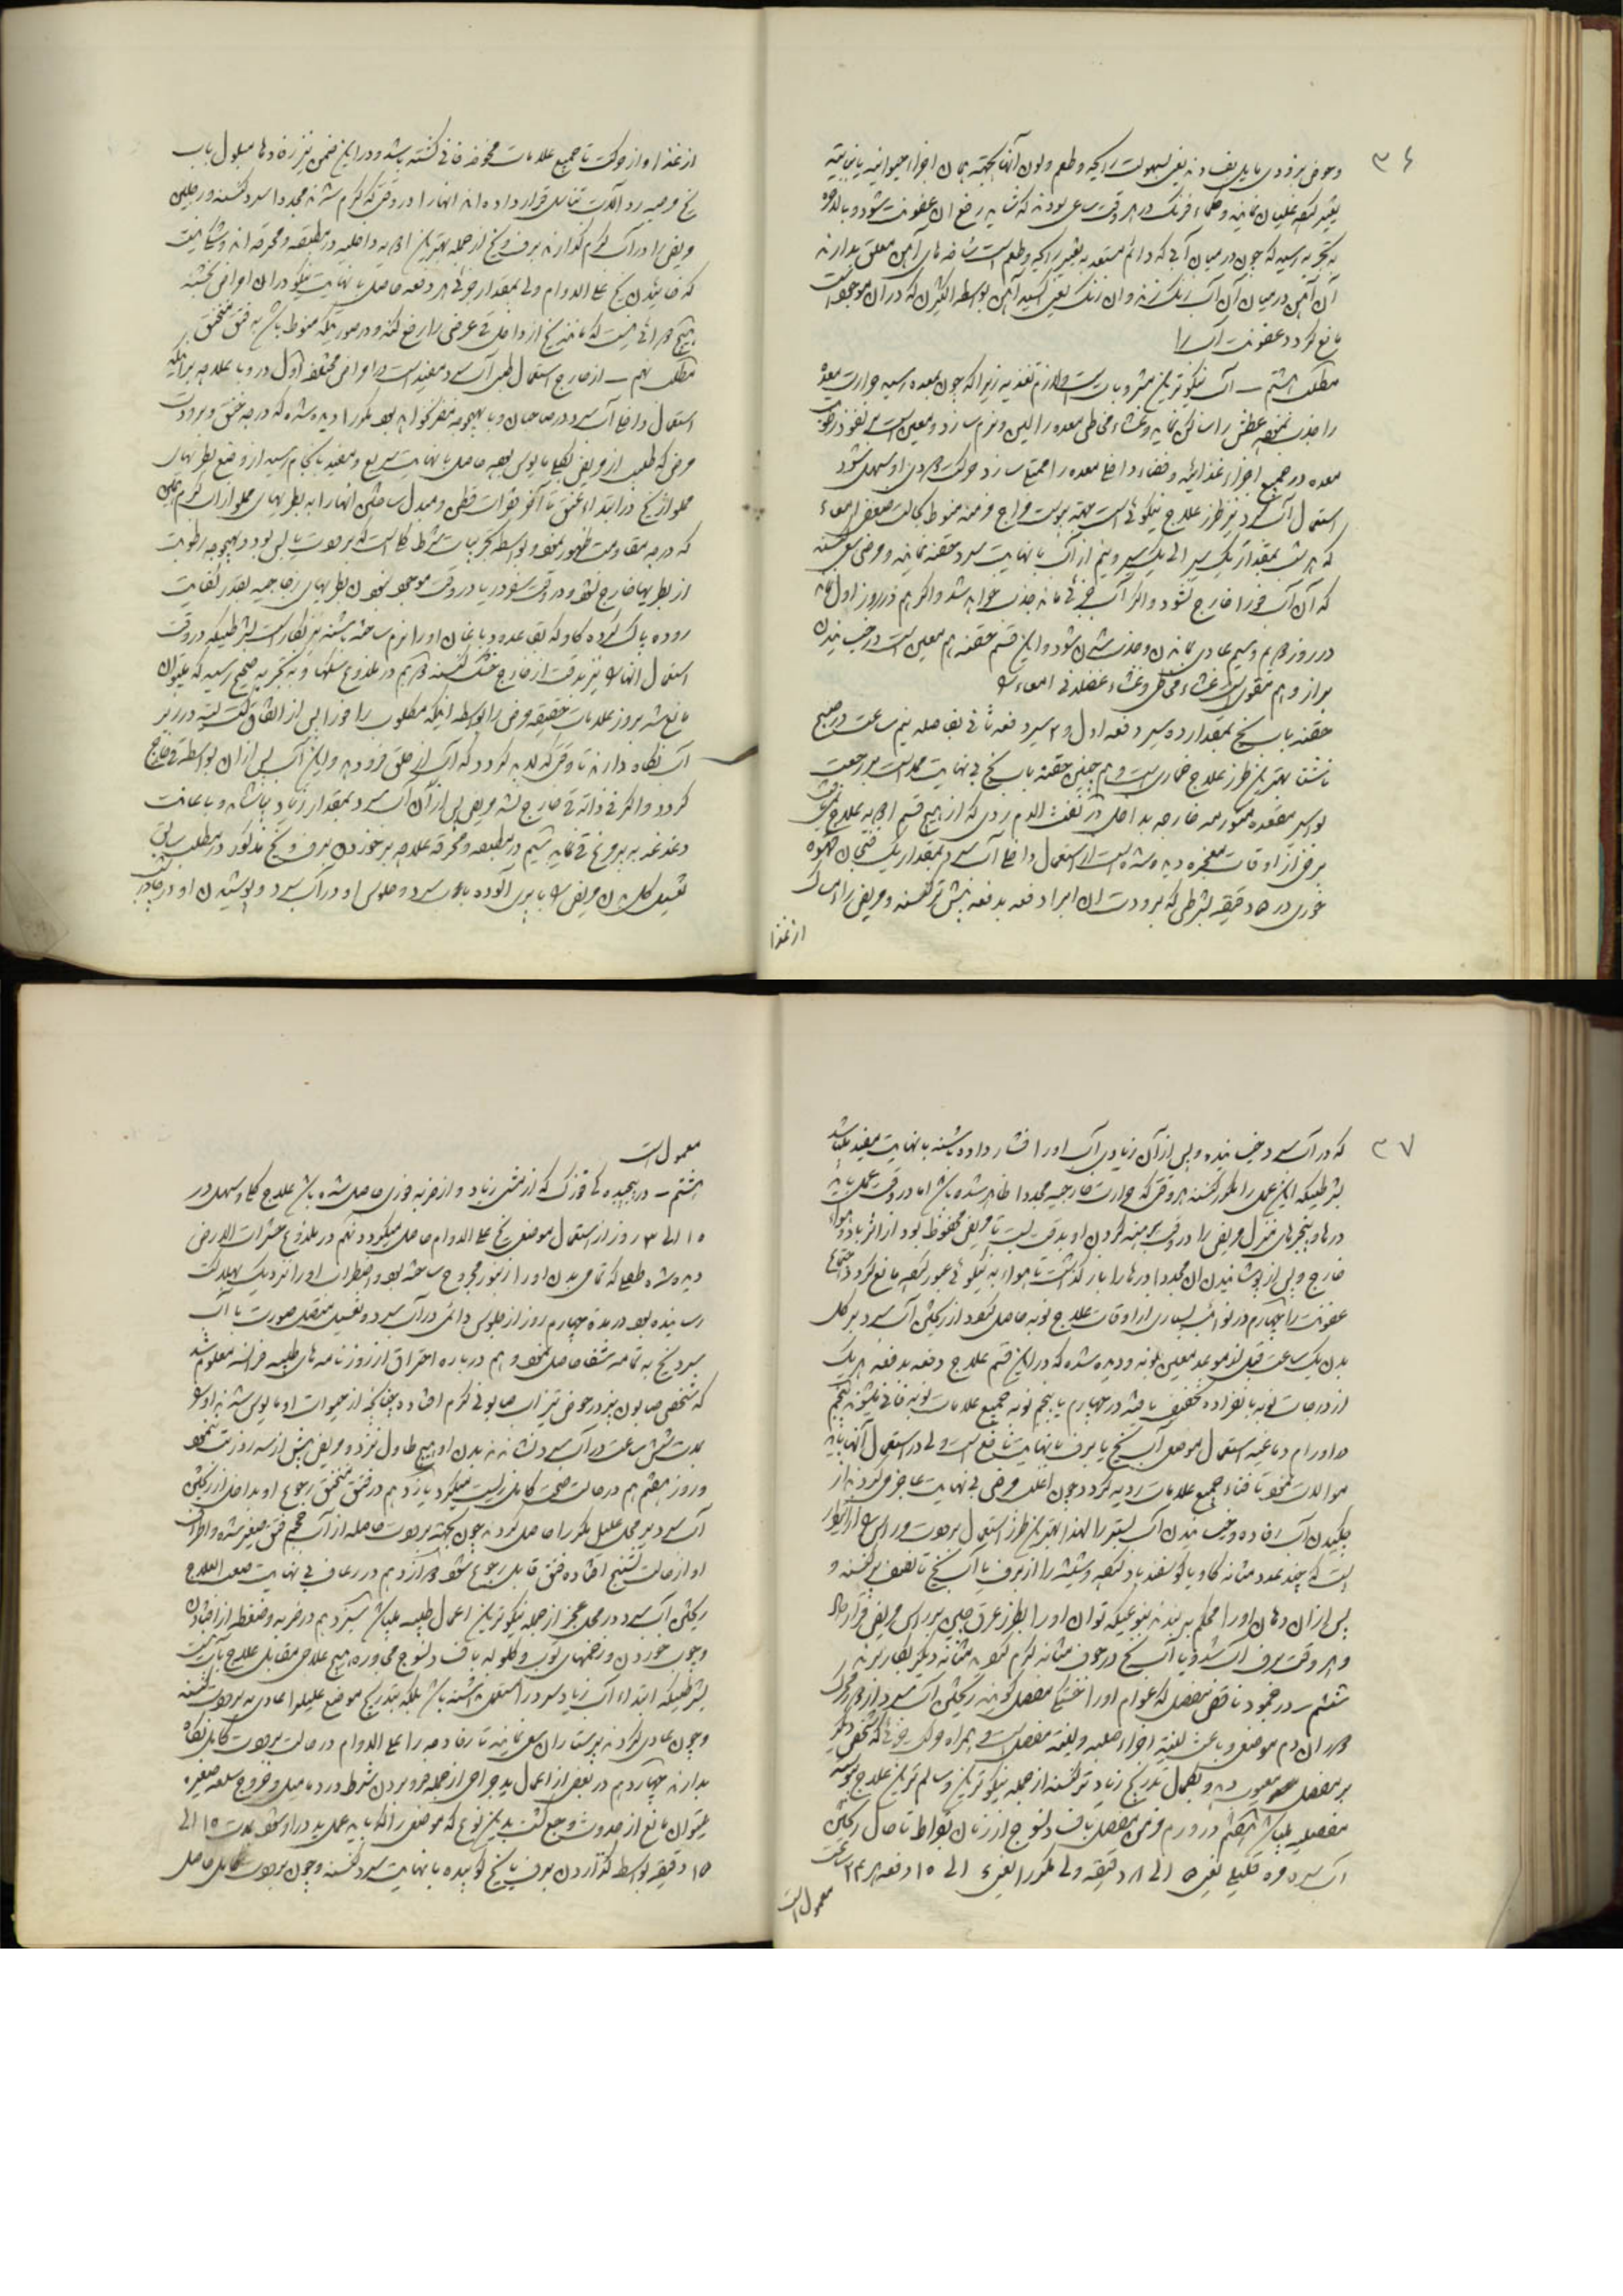 ۳۶
و حوض بزودی مایل بفساد
تغییر کنند غلیان نمایند و حکماء فرنک در هر وقت ساعی بودند که شاید رفع ان عفونت شود و بالاخره
به تجربه رسید که چون در میان آبی که دائم مستعد به تغییر رایحه و طعم است شاخه های آهن معلق بدارند
آن آهن در میان آن آب زنک زند و ان زنک یعنی اکسید آهن بواسطه اکثرن که در آن موجود است
مانع کردد عفونت آب را
مطلب هشتم ــ آب نیکوترین مشروبات است و لازم تغذیه زیرا که چون بمعده رسید حرارت معده
را جذب نموده عطش را ساکن نماید و غشاء مخاطی معده را لین و نرم سازد و معین است بر نفوذ رطوبت
معده در جمیع اجزاء غذائیه و فضاء داخل معده را
استعمال آب سرد نیز طرز علاج نیکوئی است جهة یبوست مزاج مزمنه منوط بکالت و ضعف امعاء
که هر شب بمقدار یک سیر الی یک سیر و نیم از آب با نهایت سرد حقنه نمایند و مریض سعی کند
که آن آب فورا خارج نشود و اگر آب جزئی ماند جذب خواهد شد و اگر هم در روز اول
در روز دویم و سیم عادی بماندن و جذب شدن شود و این قسم حقنه هم معین است در خیسانیدن
براز و هم مقوی است غشاء مخاطی و غشاء عضلانی امعاء را
حقنه باب یخ بمقدار ده سیر دفعه اول و ۳ سیر دفعه ثانی بفاصله نیم ساعت در صبح
ناشتا بهترین طرز علاج خماری است و هم چنین حقنه باب یخ بی نهایت ممد است بر رجعت
بواسیر مقعده متورمه خارجه بداخل در نفث الدم ردی که از هیچ قسم ادویه علاج
برخی از اوقات معجزه دیده شده است از استعمال داخل آب سرد بمقدار یک فنجان قهوه
خوری در ۵ دقیقه بشرطی که برودت ان ابرا دفعه بدفعه بیش تر کنند و مریض را امساک
از غذا
از غذا و از حرکت تا جمیع علامات مخوفه فانی کشته باشد و در این ضمن نیز رفاده ها مبلول باب
یخ بر صدر و آلات تناسل قرار داده اند انها را در وقتی که کرم شدند مجددا سرد کنند و رجلین
مریض را در آب کرم کذارند برف و یخ از جمله بهترین ادویه داخلیه در مطبقه و محرقه اند و شک نیست
که خائیدن یخ علی الدوام ولی بمقدار جزئی هر دفعه حاصل با نهایت نیکو در ان امراض بخشد
هیچ دوائی نیست که مانند یخ از داخل قی عرضی را رفع کند و در صورتیکه منوط باشد به فتق مختنق
مطلب نهم ــ از خارج استعمال طبی آب سرد مفید است در امراض مختلفه اول در وبا علاوه بر اینکه
استعمال داخل آب سرد در صاحبان وبا بهیچوجه مضر نخواهد بود مکررا دیده شده که درجه خنق و برودت
مرضی که طبیب از مریض بکلی مایوس بوده حاصل با نهایت سریع و مفید بانجام رسید از وضع بطریهای
مملو از یخ در ابتداء عنق تا آخر فقرات قطن و مبدل ساختن انها را به بطریهای مملو از اب کرم همین
که درجه مقاومت ظهور نمود و بواسطه تجربیات شرط کلی است که برودت یابس بود و بهیچوجه رطوبت
از بطریها خارج نشود و در وقت سفر دریا در وقت موجود نبودن بطریهای زجاجیه بقدر کفایت
روده پاک کرده کاو که بقاعده دباغان او را نرم ساخته باشند نیز بکار است بشرطیکه در وقت
استعمال انها را نیز بدقت از خارج خشک کنند دویم در ملذوع سکها و به تجربه صحیح رسید که میتوان
مانع شد بروز علامات حقیقه مرض را بواسطه اینکه مکلوب را فورا پس از اتفاق
آب نکاه دارند تا وقتی که لابد کردد که آب از حلق فرو دهد و این آب پس از ان بواسطه قی خارج
کردد و اگر قی ذاته قی خارج نشد مریض پس از آن آب سرد بمقدار زیاد بیاشامد و با عانت
دغدغه به پر مرغ قی نماید سیم در مطبقه و محرقه علاوه بر خوردن برف و یخ مذکور در مطلب سابق
تغسیل کل بدن مریض را
۳۷
که در آب سرد خیسانیده و پس از آن زیادی آب او را فشار داده باشند با نهایت مفید میباشد
بشرطیکه این عمل را مکرر کنند هر وقتی که حرارت خارجیه مجددا ظاهر شده باشد اما در وقت عمل باید
درها و پنجرهای منزل مریض را در وقت برهنه کردن او بدقت بست تا مریض محفوظ بود از اثر باد و هواء
خارج و پس از پوشانیدن ان مجددا درها را باز کذاشت تا هواء به نیکوئی عبور کند مانع کردد اجتماع
عفونت را چهارم در نوائب بسیاری از اوقات علاج نوبه حاصل کردد از ریختن آب سرد بر کل
بدن یک ساعت قبل از موعد معین نوبه و دیده شده که در این قسم علاج دفعه بدفعه هر یک
از درجات نوبه بانفراده تخفیف یافته در چهارم یا پنجم نوبه جمیع علامات نوبه فانی میشوند پنجم
در اورام دماغیه استعمال موضعی آب یخ یا برف با نهایت نافع است ولی در استعمال آنها باید
موالات نمود تا فناء جمیع علامات ردیه کردد چون اغلب مرضی بی نهایت عاجز میکردند از
چکیدن آب رفاده و خیسانیدن آب بستر را لهذا بهترین طرز استعمال برودت در راس
است که چند عدد مثانه کاو یا کوسفند باد کنند و شیشه را از برف یا آب یخ تا نصف پر کنند و
پس از ان دهان او را محکم به بندند بنوعیکه توان او را بطرز عرق چین بر راس مریض قرار داد
و هر وقت برف آب شد و یا آب یخ در جوف مثانه کرم کردد مثانه دیگر بکار برند
ششم ــ در جمود ناقص مفصل که عوام او را خشکی مفصل کویند ریختن آب سرد
دوران دم موضعی و باعث لینة اجزاء صلبه و لیفیه مفصل است و بهمراه حرکت
بر مفصل معیوب دهد و بکمال تدریج زیاد تر کنند از جمله نیکوترین و سالم ترین علاج
مفصلیه میباشد هفتم در ورم مزمن مفصل بافت دلنوج از زنان
آب سرد مره قلیل یعنی ۵ الی ۸ دقیقه ولی مکررا یعنی ۶ الی ۱۵ دفعه در ۲۴ ساعت
معمول است
معمول است
هشتم ــ در پیچیده کی قوزک که از مشی زیاد و از ضربه فوری حاصل شده باشد علاج کلی و سهل در
۱۵ الی ۳۰ روز از استعمال موضعی یخ علی الدوام حاصل میکردد نهم در ملذوع حشرات الارض
دیده شده طفلی که تمامی بدن او را زنبور مجروح ساخته بود و اضطراب او را نزدیک بهلاکت
رسانیده بود در مدة چهارم روز از جلوس دائمی در آب سرد و تغسیل متصل صورت با آب
سرد یخ به تمامه شفا حاصل نمود دهم در باره احتراق از روزنامه های طبیه فرانسه معلوم شد
که شخص صابون پز در حوض تیزاب صابونی کرم افتاده چنانچه از حیات او مایوس شدند او را
مدت شش ساعت در آب سرد نشاندند بدن او هیچ طاول نزد و مریض بیش از سه روز تب ننمود
و روز هفتم هم در حالت صحت کامل زیست میکرد یازدهم در فتق مختنق رجوع او بداخل از ریختن
آب سرد بر محل علیل مکررا حاصل کردد چون بجهة برودت حاصله از آب حجم فتق صغیر شده و اطراف
او از حالت تشنج افتاده فتق قابل رجوع شود دوازدهم در رعاف بی نهایت صعب العلاج
ریختن آب سرد در محل عجز از جمله نیکوترین اعمال طبیه میباشد سیزدهم در ضربه و ضغطه از افتادن
و چوب خوردن و زخمهای توب و کلوله بافت دلنوج مجاوره هیچ علاجی مقابل علاج با آب نیست
بشرطیکه ابتداء آب زیاد سرد استعمال نشده باشد بلکه بتدریج موضع علیل را عادی به برودت کنند
و چون عادی کردند پرستاران سعی نمایند تا رفاده را علی الدوام در حالت برودت کامل نکاه
بدارند چهاردهم در بعضی از اعمال ید جراحی از جمله فرو بردن نشتر در دمامیل و خروج سلعه صغیره
میتوان مانع از حدوث وجع کشت بدین نوع که موضعی را که باید عمل ید در او شود مدت ۱۰ الی
۱۵ دقیقه بواسطه کذاردن برف یا یخ کوبیده با نهایت سرد کنند و چون برودت کامل حاصل